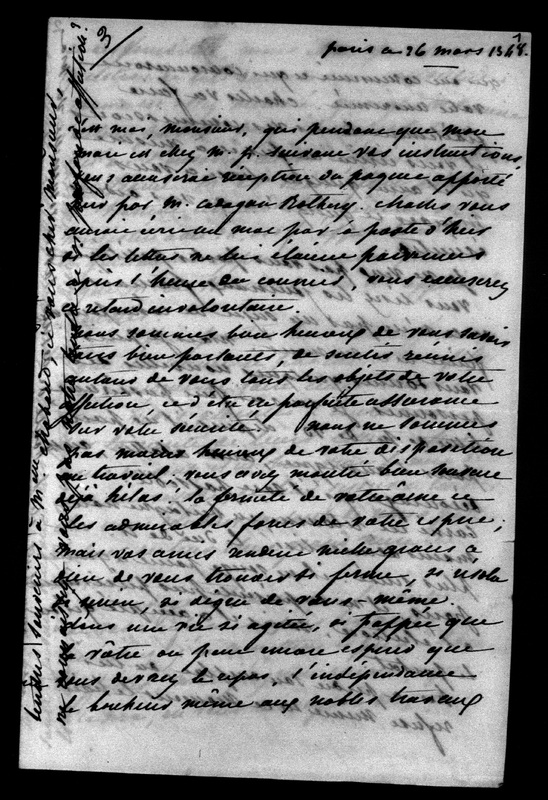 3/
paris ce 26 mars 1848.
moi, monsieur, qui pendant que mon
mari est chez m. g. suivant vos instructions,
vous accuserai reception du paquet apporté
hier par m. cadogan Rothery. Charles vous
aurait écrit un mot par la poste d'hier
si les lettres ne lui étaient parvenues
après l'heure du courrier, vous excuserez
ce retard involontaire.
nous sommes bien heureux de vous savoir
tous bien portants, de sentir réunis
autour de vous tous les objets de votre
affection, et d'être en parfaite assurance
sur votre sécurité. nous ne sommes
pas moins heureux de votre disposition
au travail. vous avez montré bien souvent
déjà hélas! la fermeté de votre âme et
les admirables forces de votre esprit;
mais vos amis rendent mille graces à
dieu de vous trouver si ferme, si résolu
si digne de vous-même.
dans une vie si agitée, si frappée que
la vôtre on peut encore espérer que
vous devrez le repos, l'indépendance
le bonheur même aux nobles travaux
tendres souvenirs à Mme et à vous cher monsieur
affection?